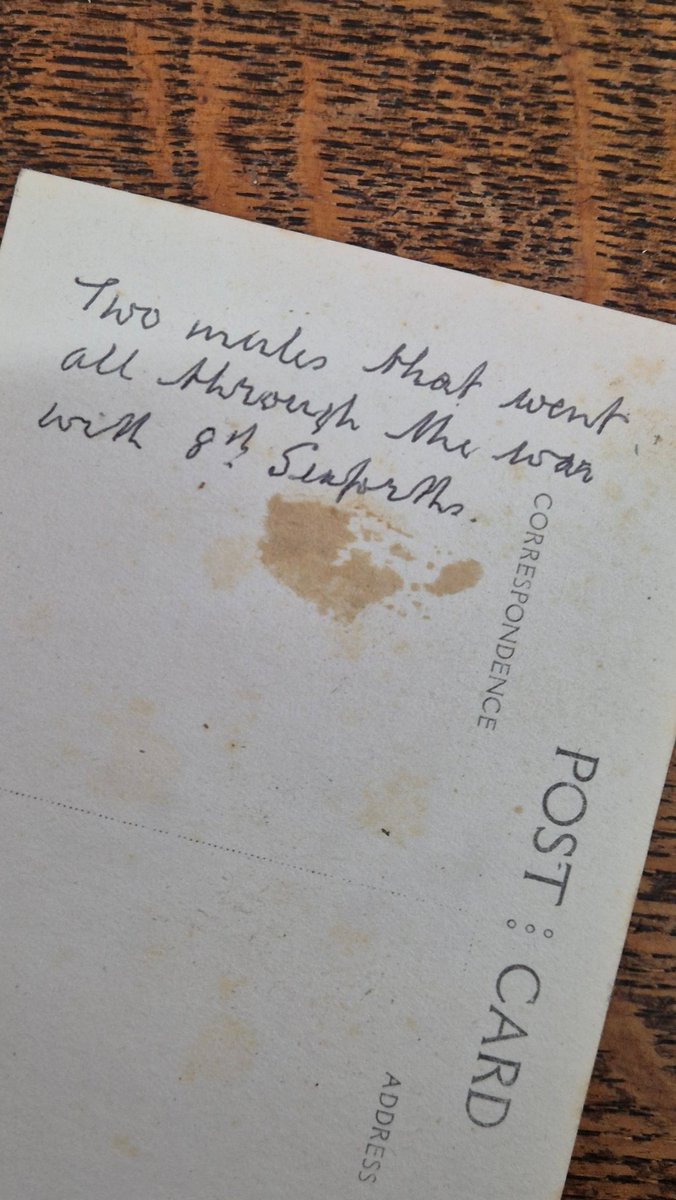 Two mules that went
all through the war
with 8th Seaforths.
CORRESPONDENCE
POST CARD
ADDRESS